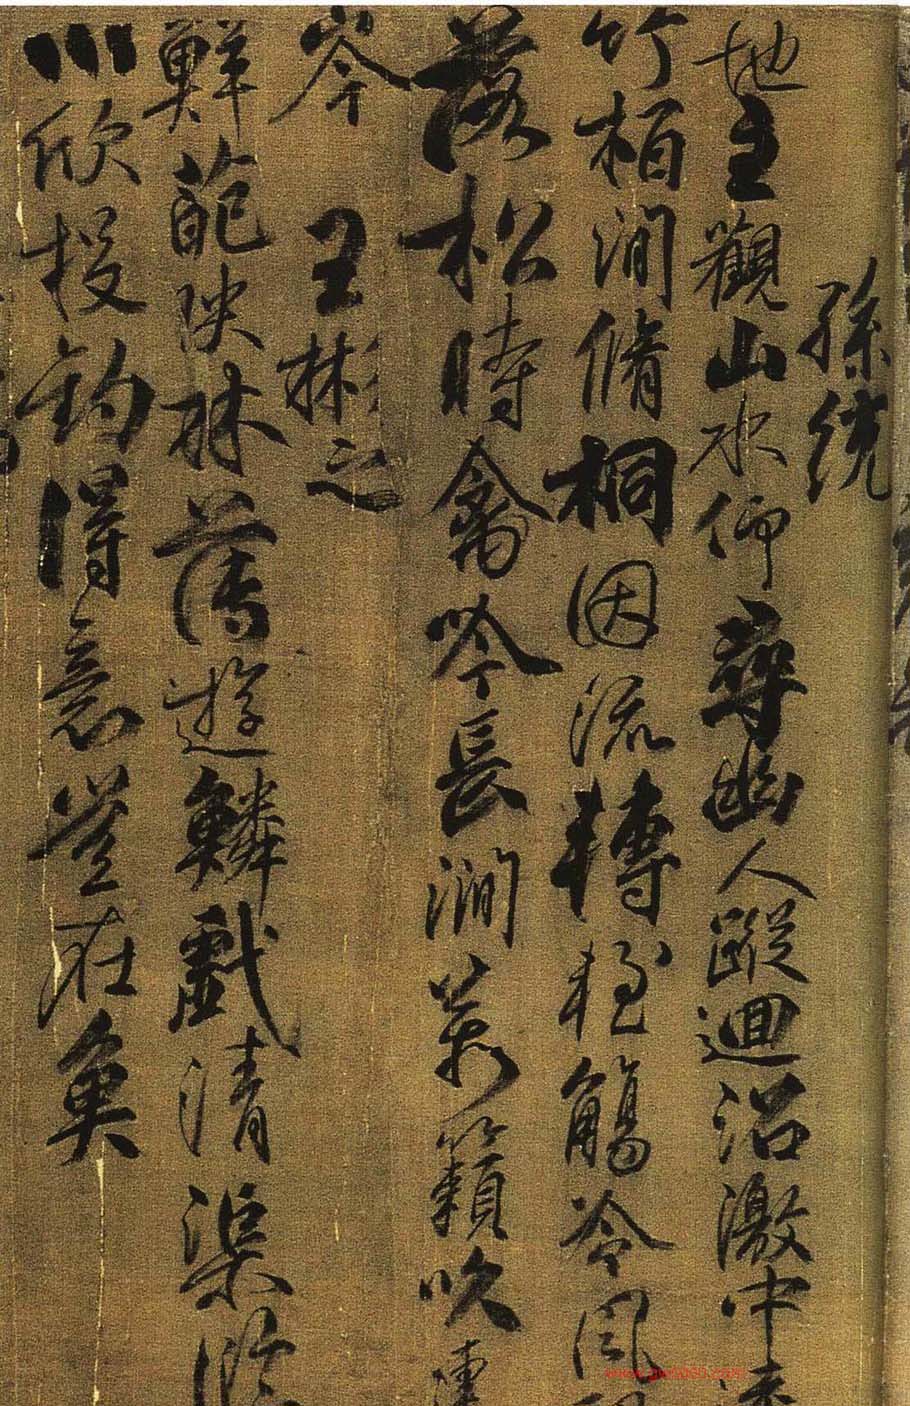 孫統
地主觀山水仰尋幽人蹤迴沼激中
竹柏澗脩桐因流轉輕觴冷風
落松時禽吟長澗萬籟吹連
岑 王彬之
鮮葩映林薄遊鱗戲清渠臨
川欣投釣得意豈在魚